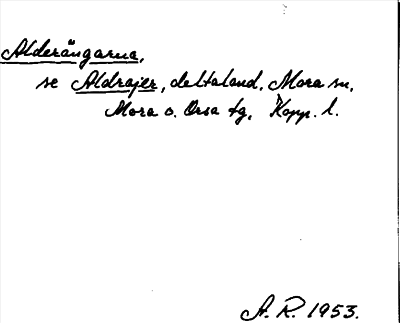 Alderängarna,
se Aldrajer, deltaland, Mora sn,
Mora o. Orsa tg, Kopp. l.
A. R. 1953.